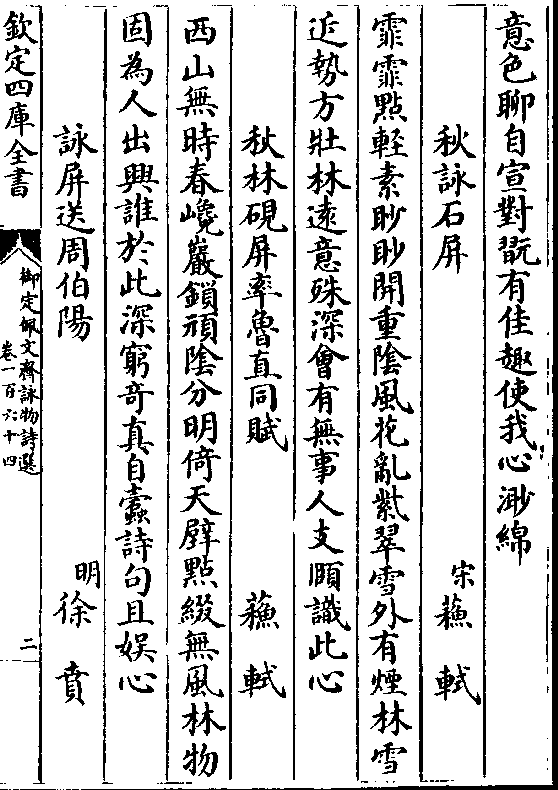 意色聊自宣對翫有佳趣使我心渺綿
秋詠石屏 宋蘇軾
霏霏點輕素眇眇開重陰風花亂紫翠雪外有煙林雪
近勢方壯林遠意殊深會有無事人支頤識此心
秋林硯屏率魯直同賦 蘇軾
西山無時春巉巖鎖頑陰分明倚天壁點綴無風林物
固為人出興誰於此深窮奇真自蠹詩句且娛心
詠屏送周伯陽 明徐賁
欽定四庫全書
御定佩文齋詠物詩選
卷一百六十四
二